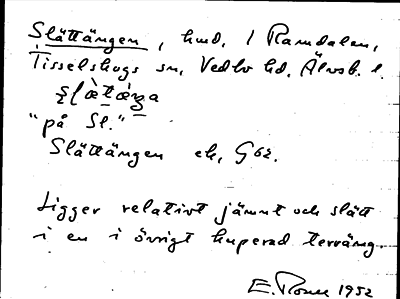 Slättängen, hmd. / Ramdalen,
Tisselskogs sn, Vedbo hd. Älvsb. l.
"på Sl."
Slättängen ek, G62.
Ligger relativt jämnt och slätt
i en i övrigt kuperad terräng.
E. 1952